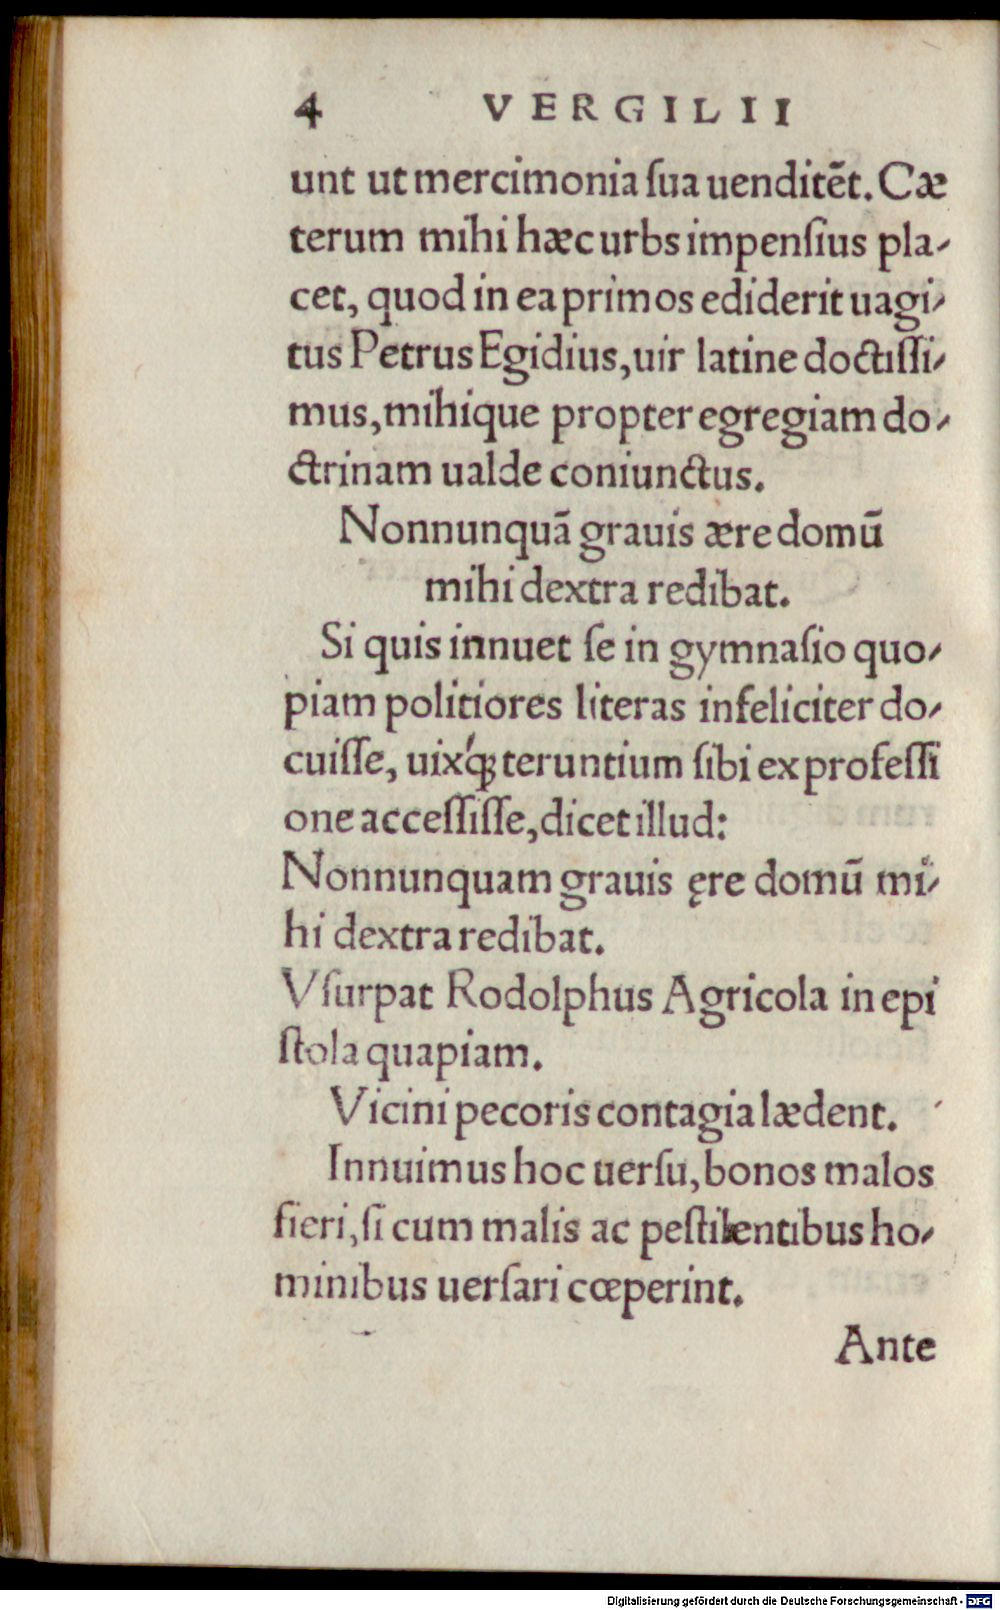 4 VERGILII
unt ut mercimonia ſua uenditēt. Cæ
terum mihi hæc urbs impenſius pla-
cet, quod in ea primos ediderit uagi-
tus Petrus Egidius, uir latine doctiſſi-
mus, mihique propter egregiam do-
ctrinam ualde coniunctus.
Nonnunquā grauis ære domū
mihi dextra redibat.
Si quis innuet ſe in gymnaſio quo-
piam politiores literas infeliciter do-
cuiſſe, uixq́ꝫ teruntium ſibi ex profeſſi
one acceſſiſſe, dicet illud:
Nonnunquam grauis ęre domū mi-
hi dextra redibat.
Vſurpat Rodolphus Agricola in epi
ſtola quapiam.
Vicini pecoris contagia lædent.
Innuimus hoc uerſu, bonos malos
fieri, ſi cum malis ac peſtilentibus ho-
minibus uerſari cœperint.
Ante
Digitalisierung gefördert durch die Deutsche Forschungsgemeinschaft - DFG